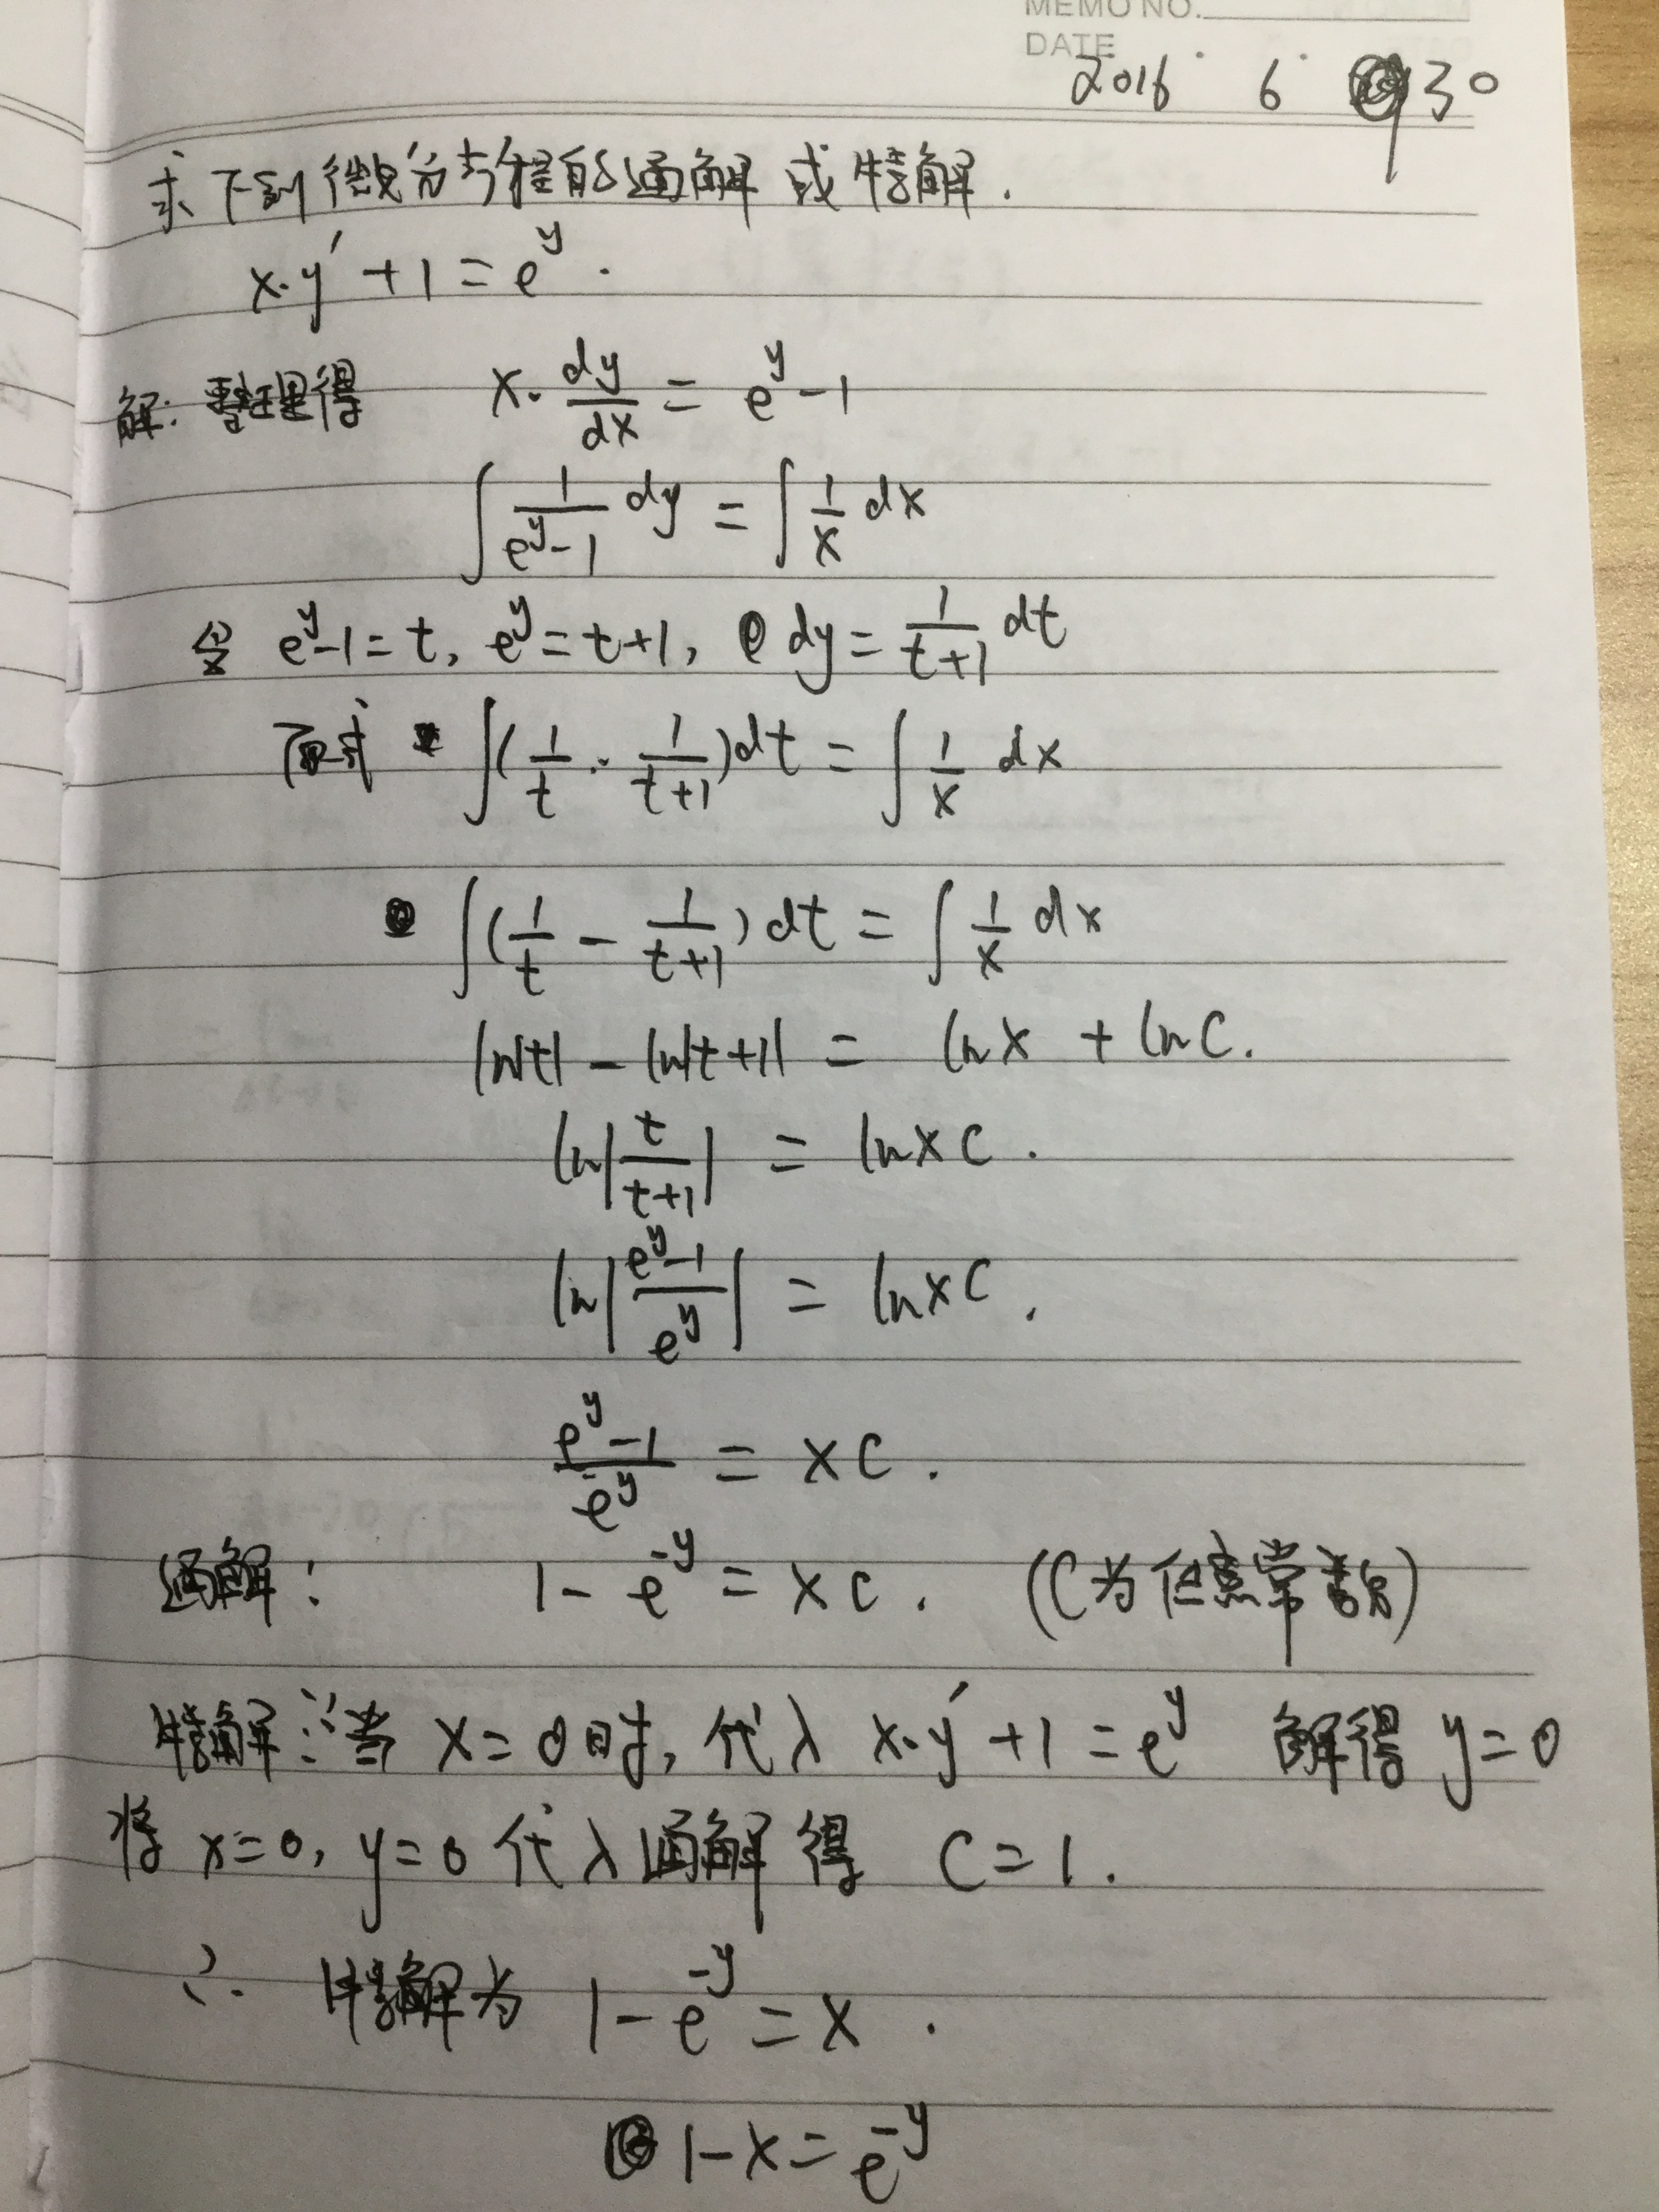 MEMO NO.
DATE
2016 · 6 · 30
求下列微分方程的通解或特解.
x·y′+1=e^y.
解: 整理得 x·dy/dx = e^y-1
∫1/(e^y-1) dy = ∫1/x dx
令 e^y-1=t, e^y=t+1, dy=1/(t+1) dt
原式 ∫(1/t · 1/(t+1))dt = ∫1/x dx
∫(1/t - 1/(t+1))dt = ∫1/x dx
ln|t| - ln|t+1| = lnx + lnC.
ln|t/(t+1)| = lnxC.
ln|(e^y-1)/e^y| = lnxC.
(e^y-1)/e^y = xC.
通解: 1-e^-y = xC. (C为任意常数)
特解: 当 x=0时, 代入 x·y′+1=e^y 解得 y=0
将 x=0, y=0 代入通解得 C=1.
∴ 特解为 1-e^-y=x.
1-x=e^-y